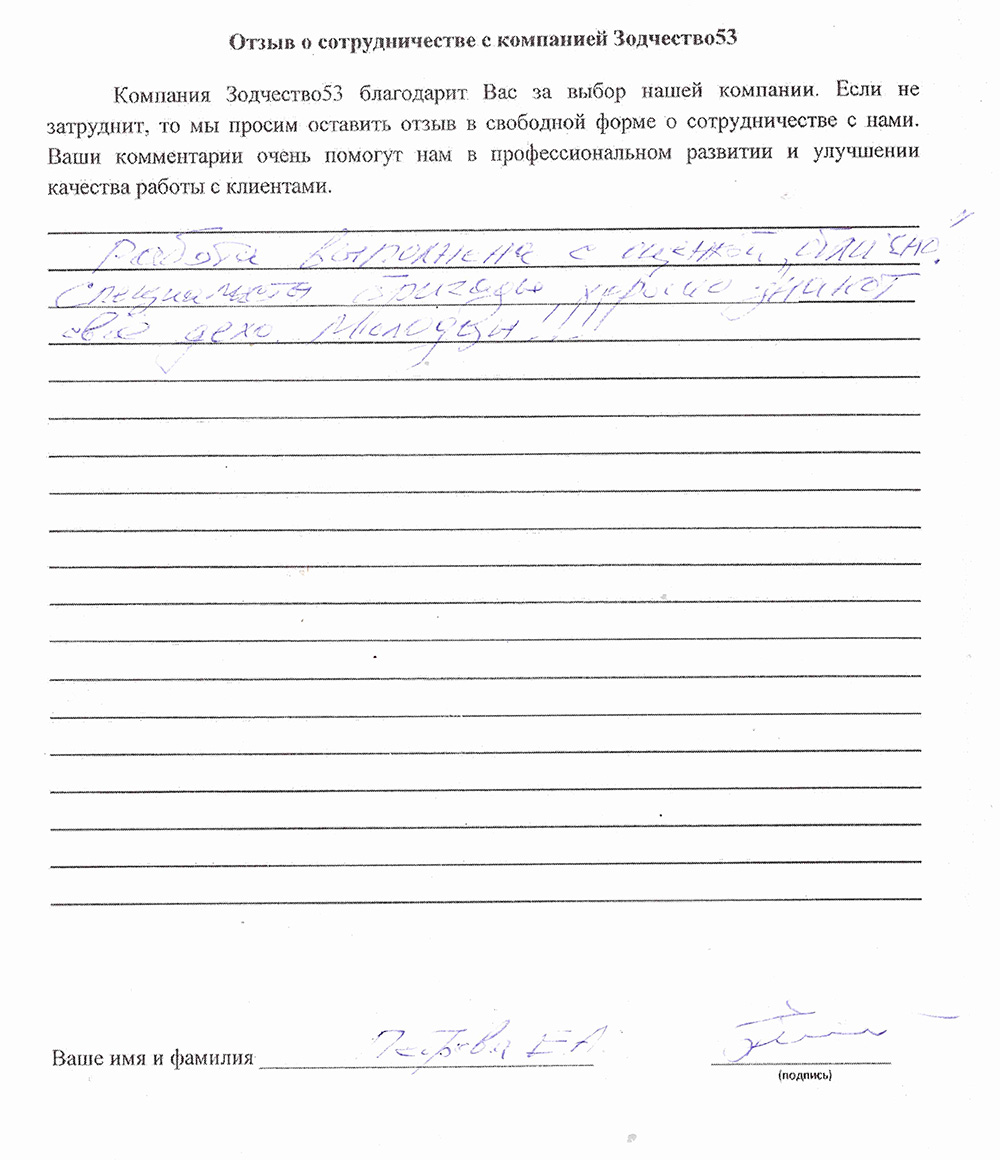 Отзыв о сотрудничестве с компанией Зодчество53
Компания Зодчество53 благодарит Вас за выбор нашей компании. Если не
затруднит, то мы просим оставить отзыв в свободной форме о сотрудничестве с нами.
Ваши комментарии очень помогут нам в профессиональном развитии и улучшении
качества работы с клиентами.
Работа выполнена с оценкой „отлично.”
Специалисты бригады хорошо знают
своё дело. Молодцы!!!
Ваше имя и фамилия Петрова Е.А.
(подпись)